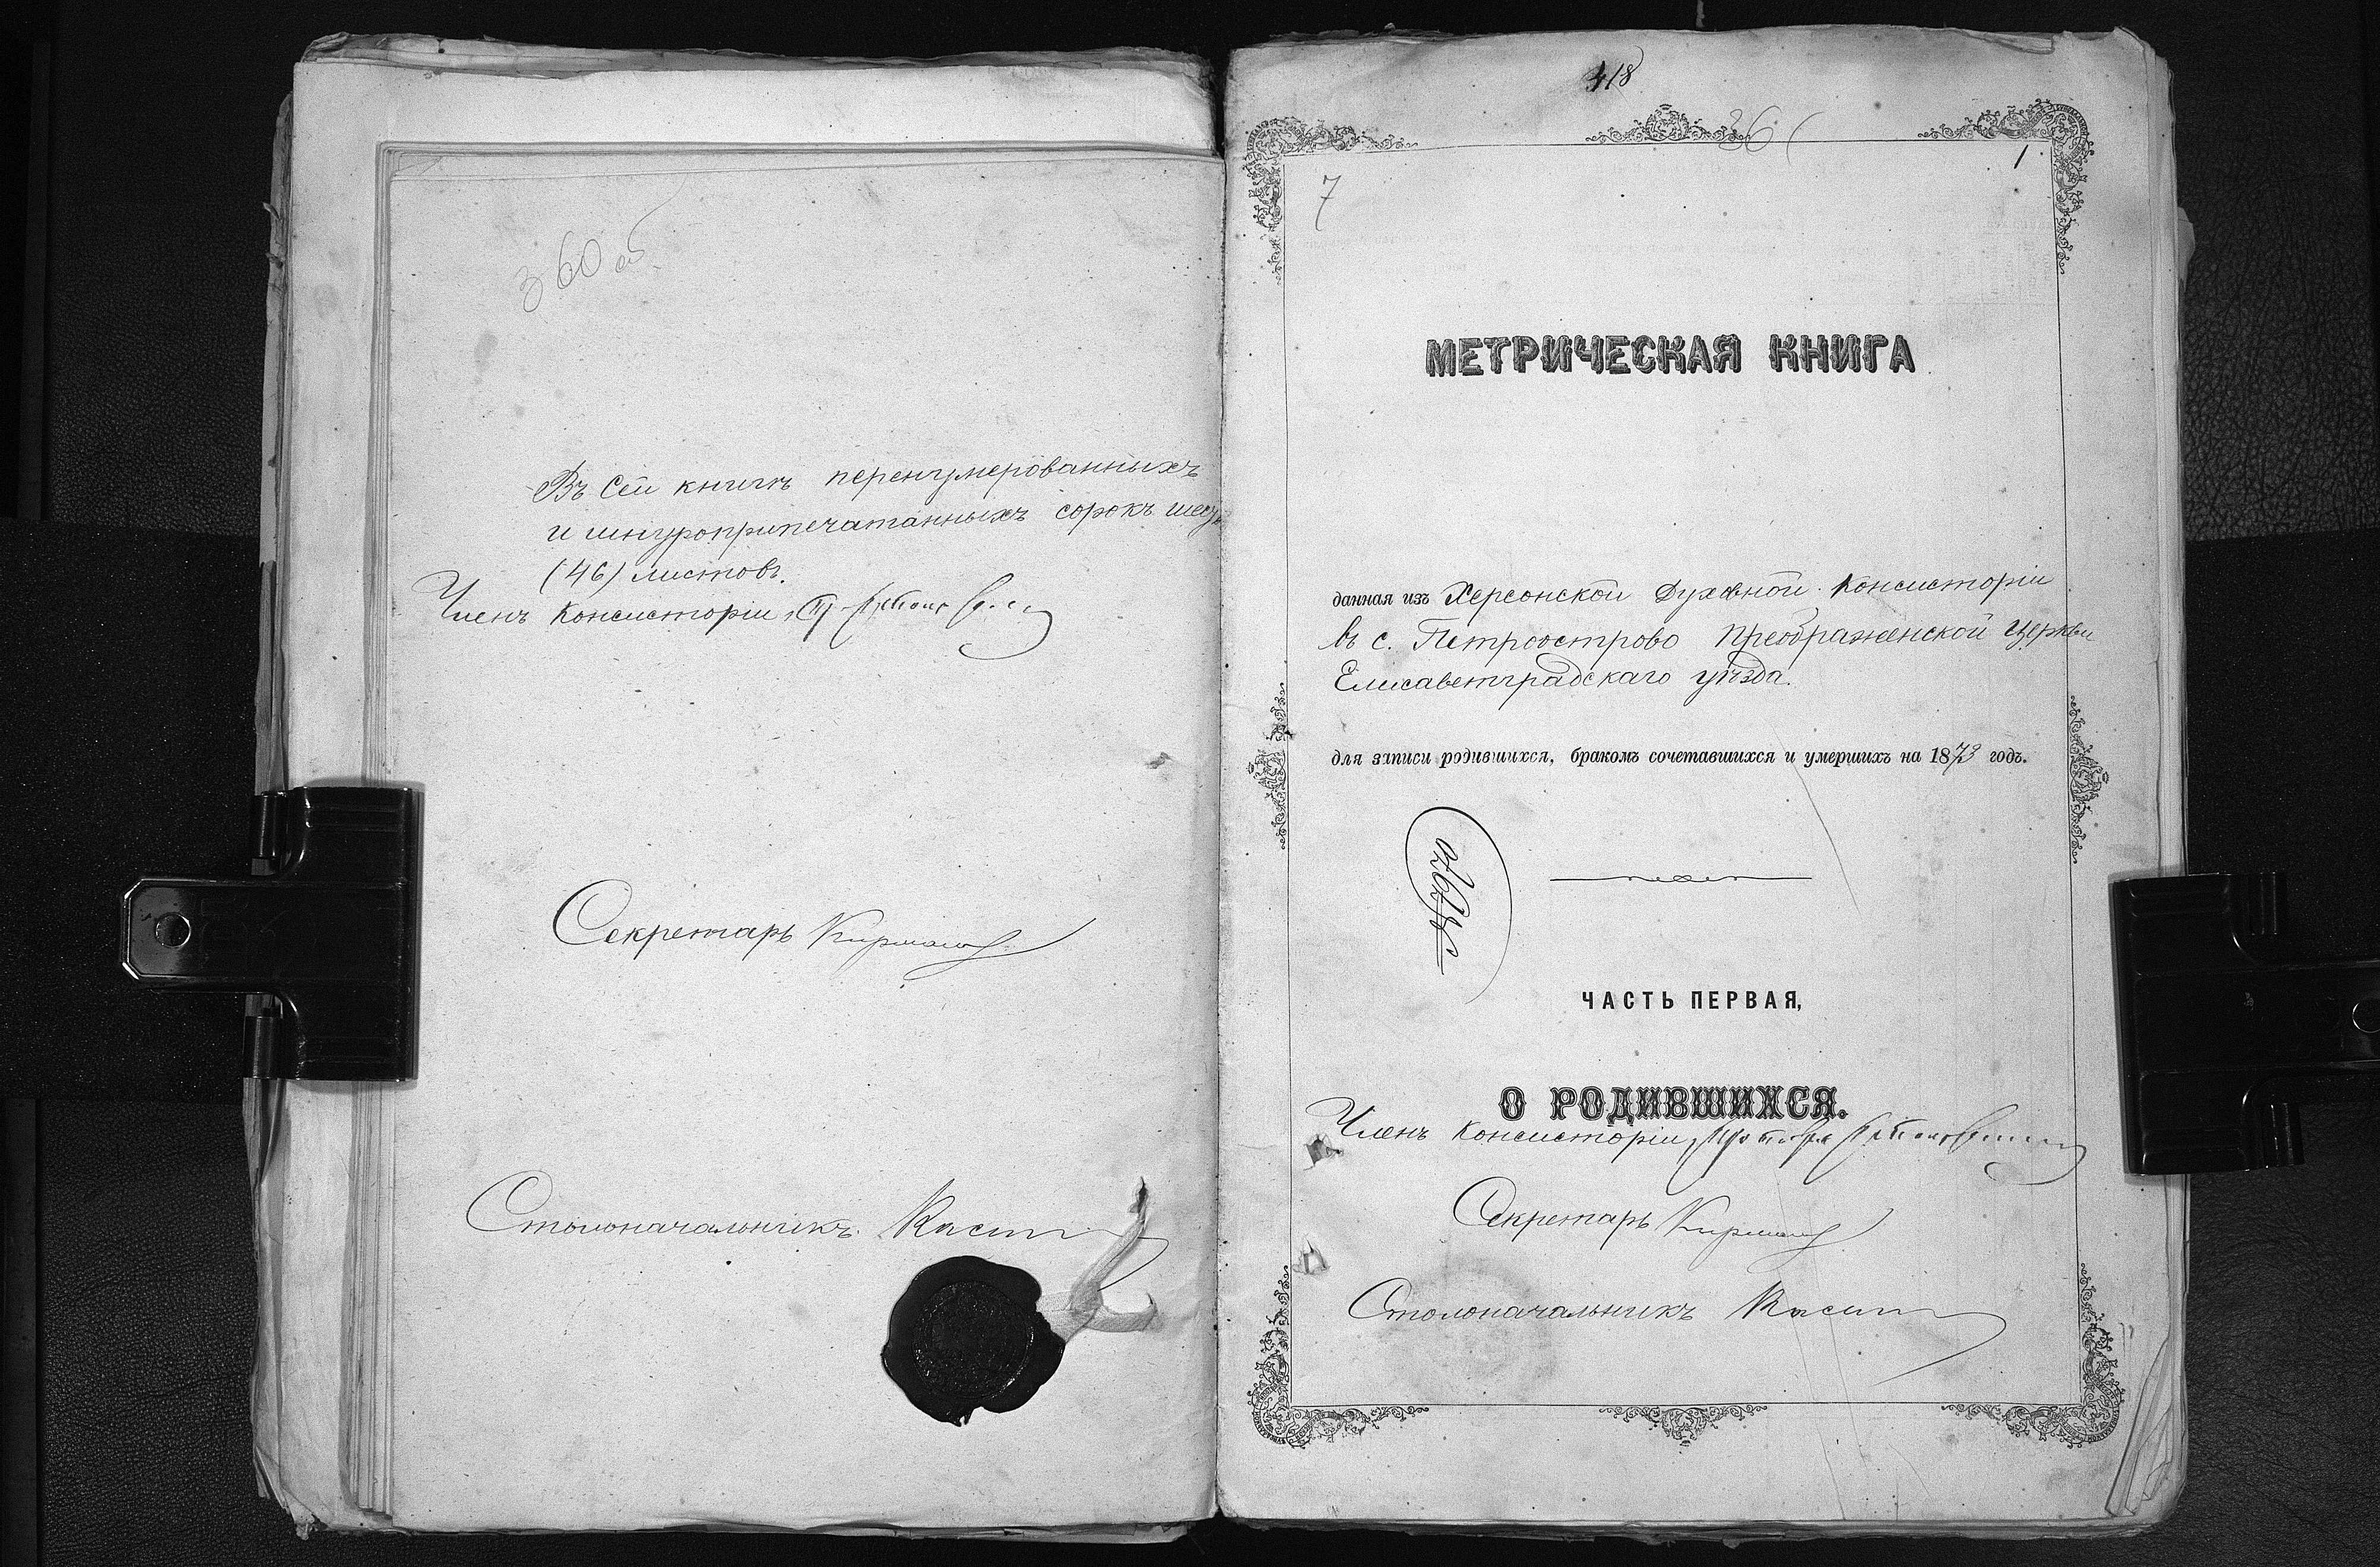 360 об
Въ сей книгѣ перенумерованныхъ
и шнуроприпечатанныхъ сорокъ шесть
(46) листовъ.
Членъ Консисторіи,
Секретарь
Столоначальникъ
418
361
1
7
МЕТРИЧЕСКАЯ КНИГА
данная изъ Херсонской Духовной Консисторіи
въ с. Петроострово Преображенской Церкви
Елисаветградскаго уѣзда.
для записи родившихся, бракомъ сочетавшихся и умершихъ на 1873 годъ.
ЧАСТЬ ПЕРВАЯ,
О РОДИВШИХСЯ.
Членъ Консисторіи,
Секретарь
Столоначальникъ